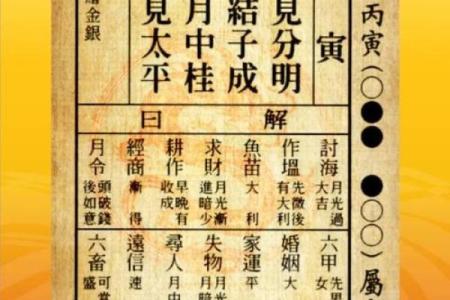 丙寅(○●● ●○○)屬
寅
見分明
結子成
月中桂
見太平
金銀
解曰
討海 月光過
大吉
作塭 先微後
有大利
魚苗 大利
求財 月光漸
進暗少
耕作 早晚有
收成
經商 漸得
月令 頭破錢
後如意
六甲 先男
女
婚姻 大
家運 平
失物 月光
月暗
尋人 月中
遠信 速
六畜 可
盛